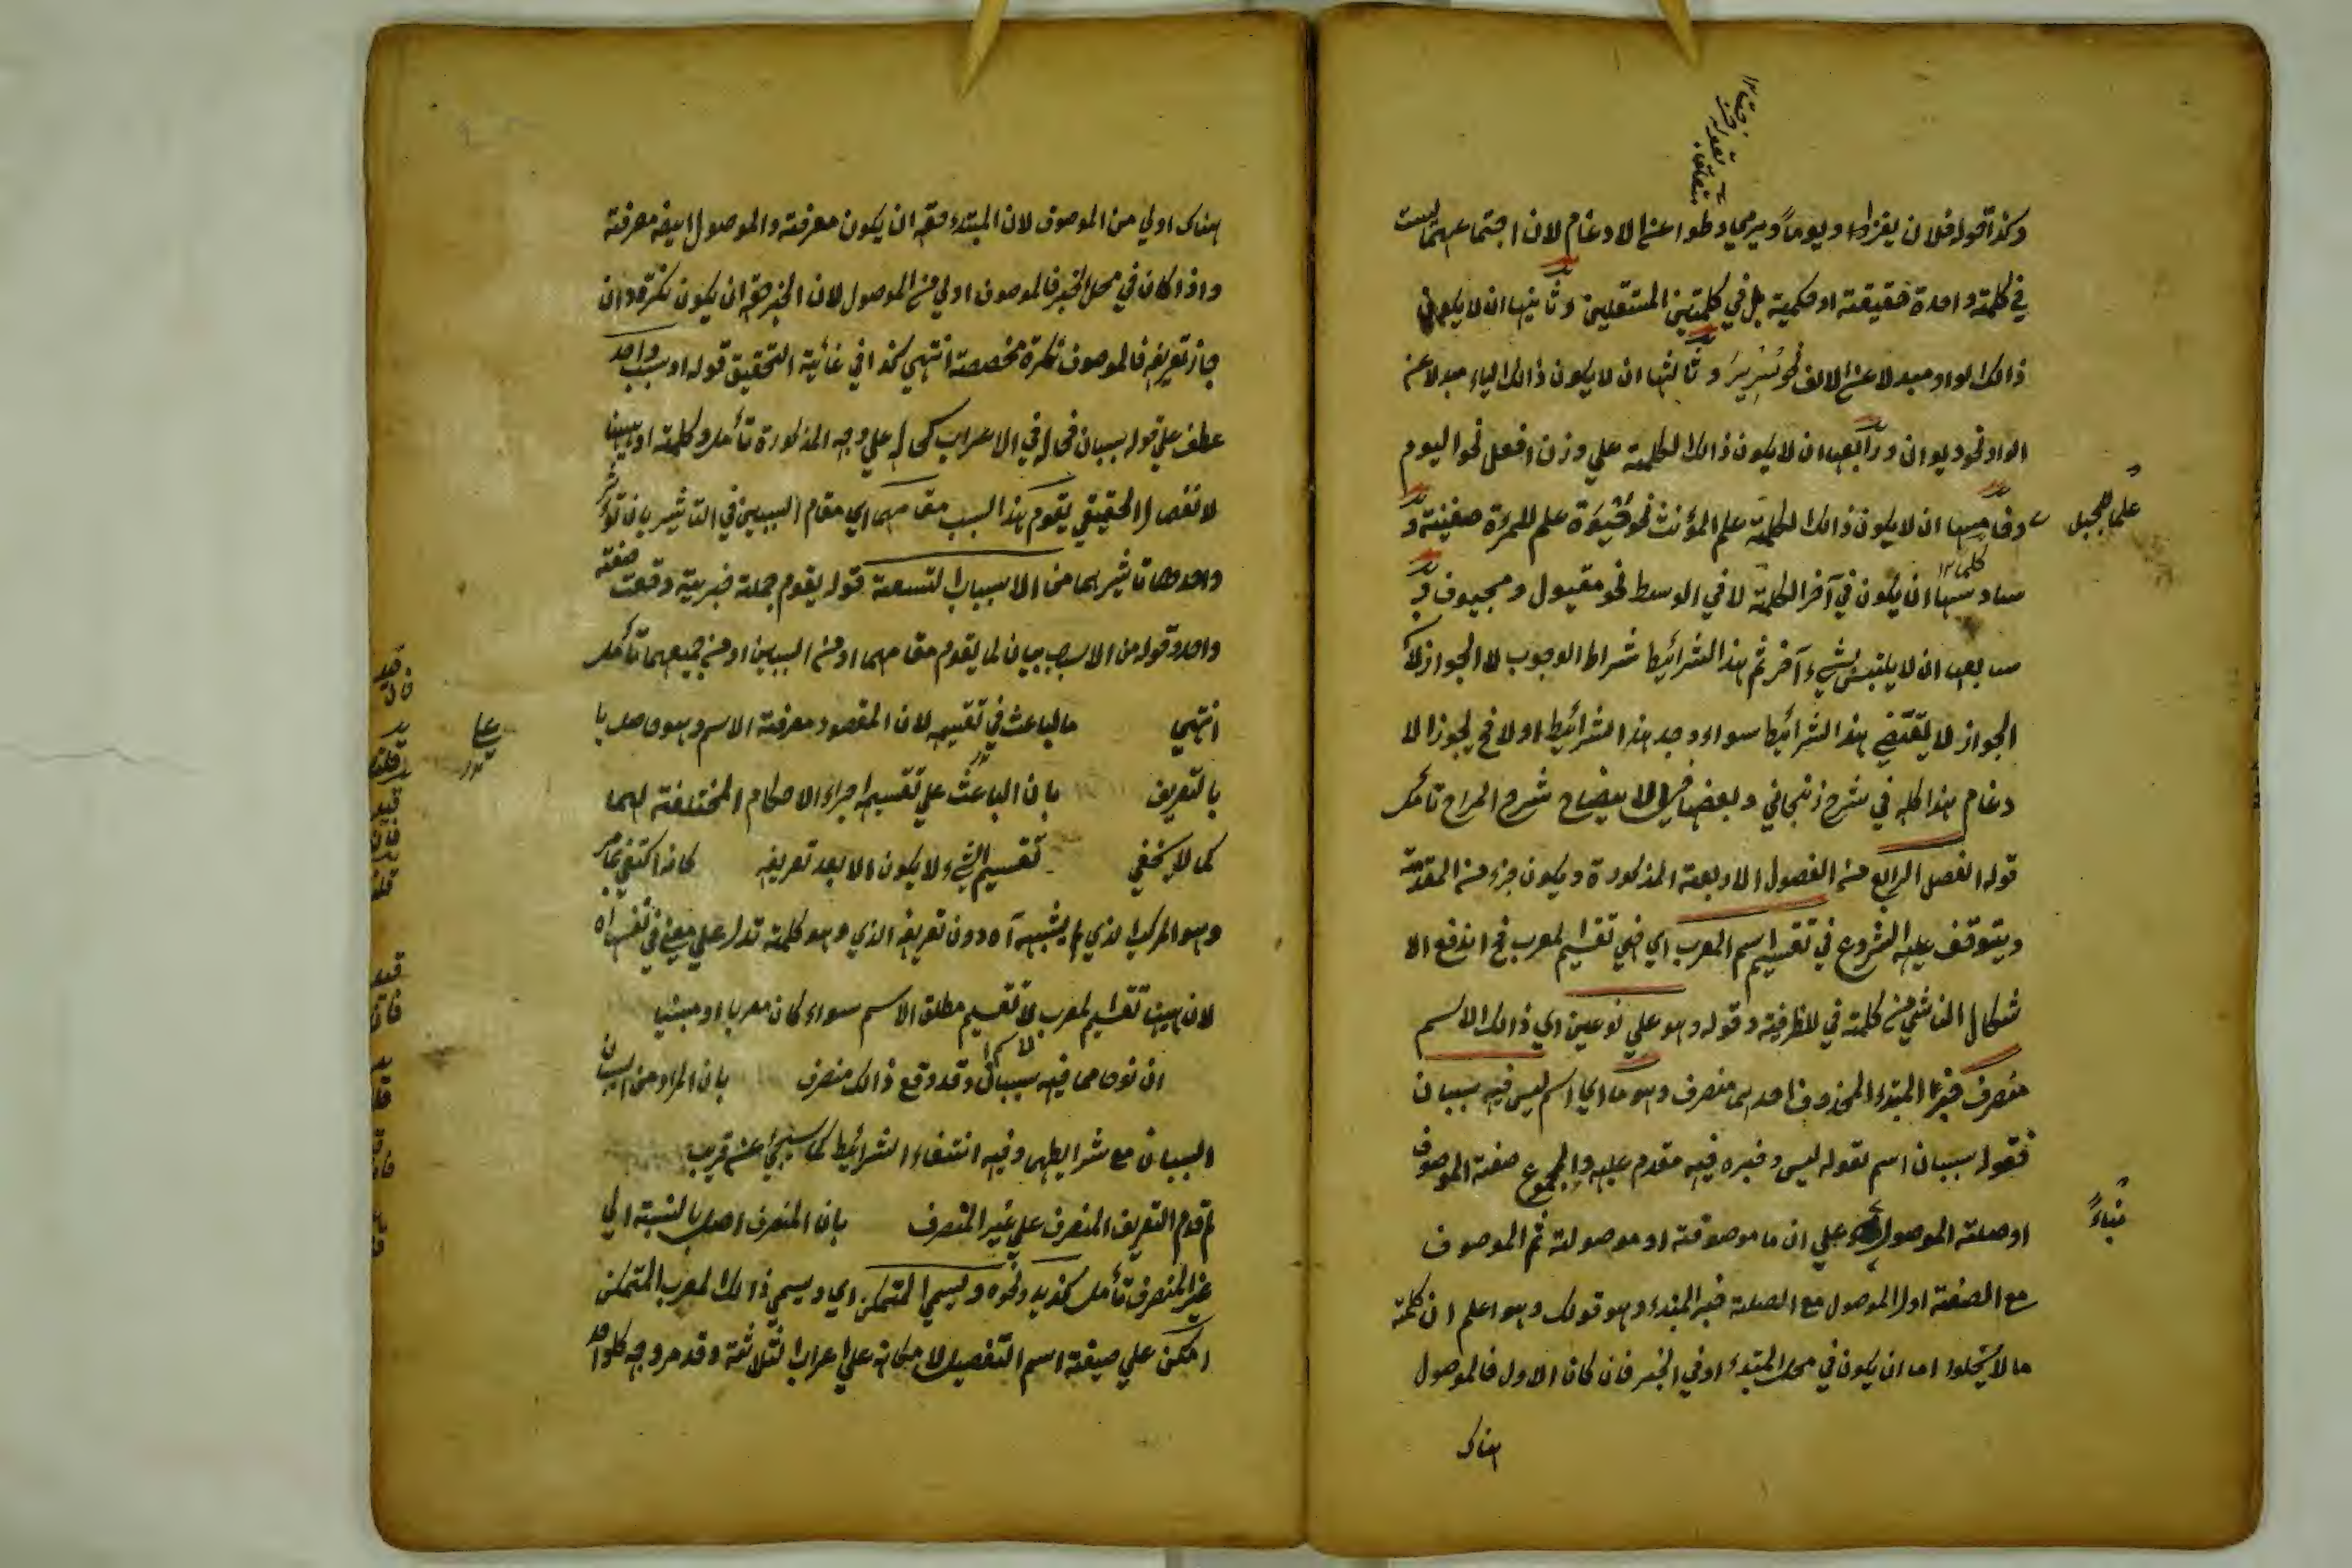 وكذا قوله فلان يغزو واو ويوماً ويرمي وطوا عن الادغام لان اجتماعهما ليست
في كلمة واحدة حقيقة او حكمية بل في كلمتين المستقلين وثانيها ان لا يكون
ذالك الواو مبدلا عن الالف نحو سوير وثالثها ان لا يكون ذالك الياء مبدلا عن
الواو نحو ديوان ورابعها ان لا يكون ذالك الكلمة علي وزن افعل نحو اليوم
وخامسها ان لا يكون ذالك الكلمة علم المؤنث نحو حيوة علم للمرءة صغينة و
علما للجبل
سادسها ان يكون في آخر الكلمة لا في الوسط نحو مقيول ومجيوف و
سابعها ان لا يلتبس بشيء آخر ثم هذا الشرائيط شرائط الوجوب لا الجواز لان
الجواز لا يقتضي هذا الشرائيط سواء وجد هذا الشرائيط او لا فح يجوز الا
دغام هذا كله في شرح زنجاني وبعضها في الايضاح شرح المراح تأمل
قوله الفصل الرابع من الفصول الاربعة المذكورة ويكون جزء من المقدمة
ويتوقف عليه الشروع في تقسيم اسم المعرب اي في تقسيم المعرب فح اندفع الا
شكال الناشي من كلمة في للظرفية وقوله وهو علي نوعين اي ذالك الاسم
منصرف خبر المبتدء المحذوف احدهما منصرف وهو ما اي اسم ليس فيه سببان
فقوله سببان اسم لقوله ليس وخبره فيه مقدم عليه والمجموع صفة الموصوف
او صلة الموصول علي ان ما موصوفة او موصولة ثم الموصوف
بناءً
مع الصفة او الموصول مع الصلة خبر المبتدء وهو قولك وهو اعلم ان كلمة
ما لا يخلوا اما ان يكون في محل المبتدء او في الخبر فان كان الاول فالموصول
هناك
هناك اولي من الموصوف لان المبتدء حقه ان يكون معرفة والموصول ايضه معرفة
واذا كان في محل الخبر فالموصوف اولي من الموصول لان الخبر حقه ان يكون نكرة وان
جاز تعريفه فالموصوف نكرة مخصصة انتهي كذا في غاية التحقيق قوله او سبب واحد
عطف علي قوله سببان فحاله في الاعراب كحاله علي وجه المذكورة تأمل وكلمة او ههنا
لانفصال الحقيقي يقوم هذا السبب مقامهما اي مقام السببين في التاثير بان تؤثر
واحد تاثيرهما من الاسباب التسعة قوله يقوم جملة خبرية وقعت صفة
واحد وقوله من الاسباب بيان لما يقوم مقامهما او من السببين او من جميعهما تأمل
انتهي ما الباعث في تقسيمه لان المقصود معرفة الاسم وهو حاصل با
بالتعريف بان الباعث علي تقسيمه اجراء الاحكام المختلفة لهما
كما لا يخفي تقسيم الشيء لا يكون الا بعد تعريفه كانه اكتفي بمامر
وهو المركب الذي لم يشبه آه دون تعريفه الذي وهو كلمة تدل علي معني في نفسها آه
لان ههنا تقسيم المعرب لا تقسيم مطلق الاسم سواء كان معربا او مبنيا
ان نوحا مما فيه سببان وقد وقع ذالك منصرف بان المراد من السببان
السببان مع شرايطهما وفيه انتفاء الشرائيط كما سيجئ عن قريب
لم قدم التعريف المنصرف علي غير المنصرف بان المنصرف اصل بالنسبة الي
غير المنصرف تأمل كزيد ونحوه ويسمي المتمكن اي ويسمي ذالك المعرب المتمكن
امكن علي صيغة اسم التفضيل لامكانه علي اعراب الثلاثة وقد مر وجه كلواحد